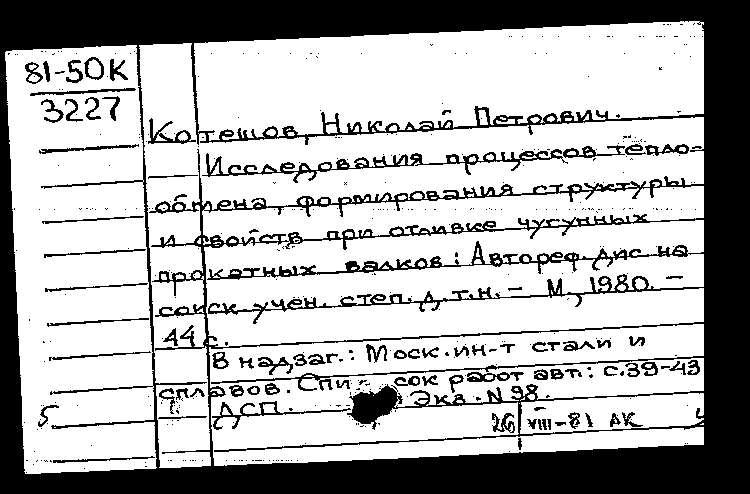 81-50К
3227
Котешов, Николай Петрович.
Исследования процессов тепло-
обмена, формирования структуры
и свойств при отливке чугунных
прокатных валков: Автореф. дис на
соиск. учен. степ. д.т.н. - М., 1980. -
44 с.
В надзаг.: Моск. ин-т стали и
сплавов. Список работ авт.: с.39-43
ДСП. Экз. N 98.
5
26 VIII-81 АК